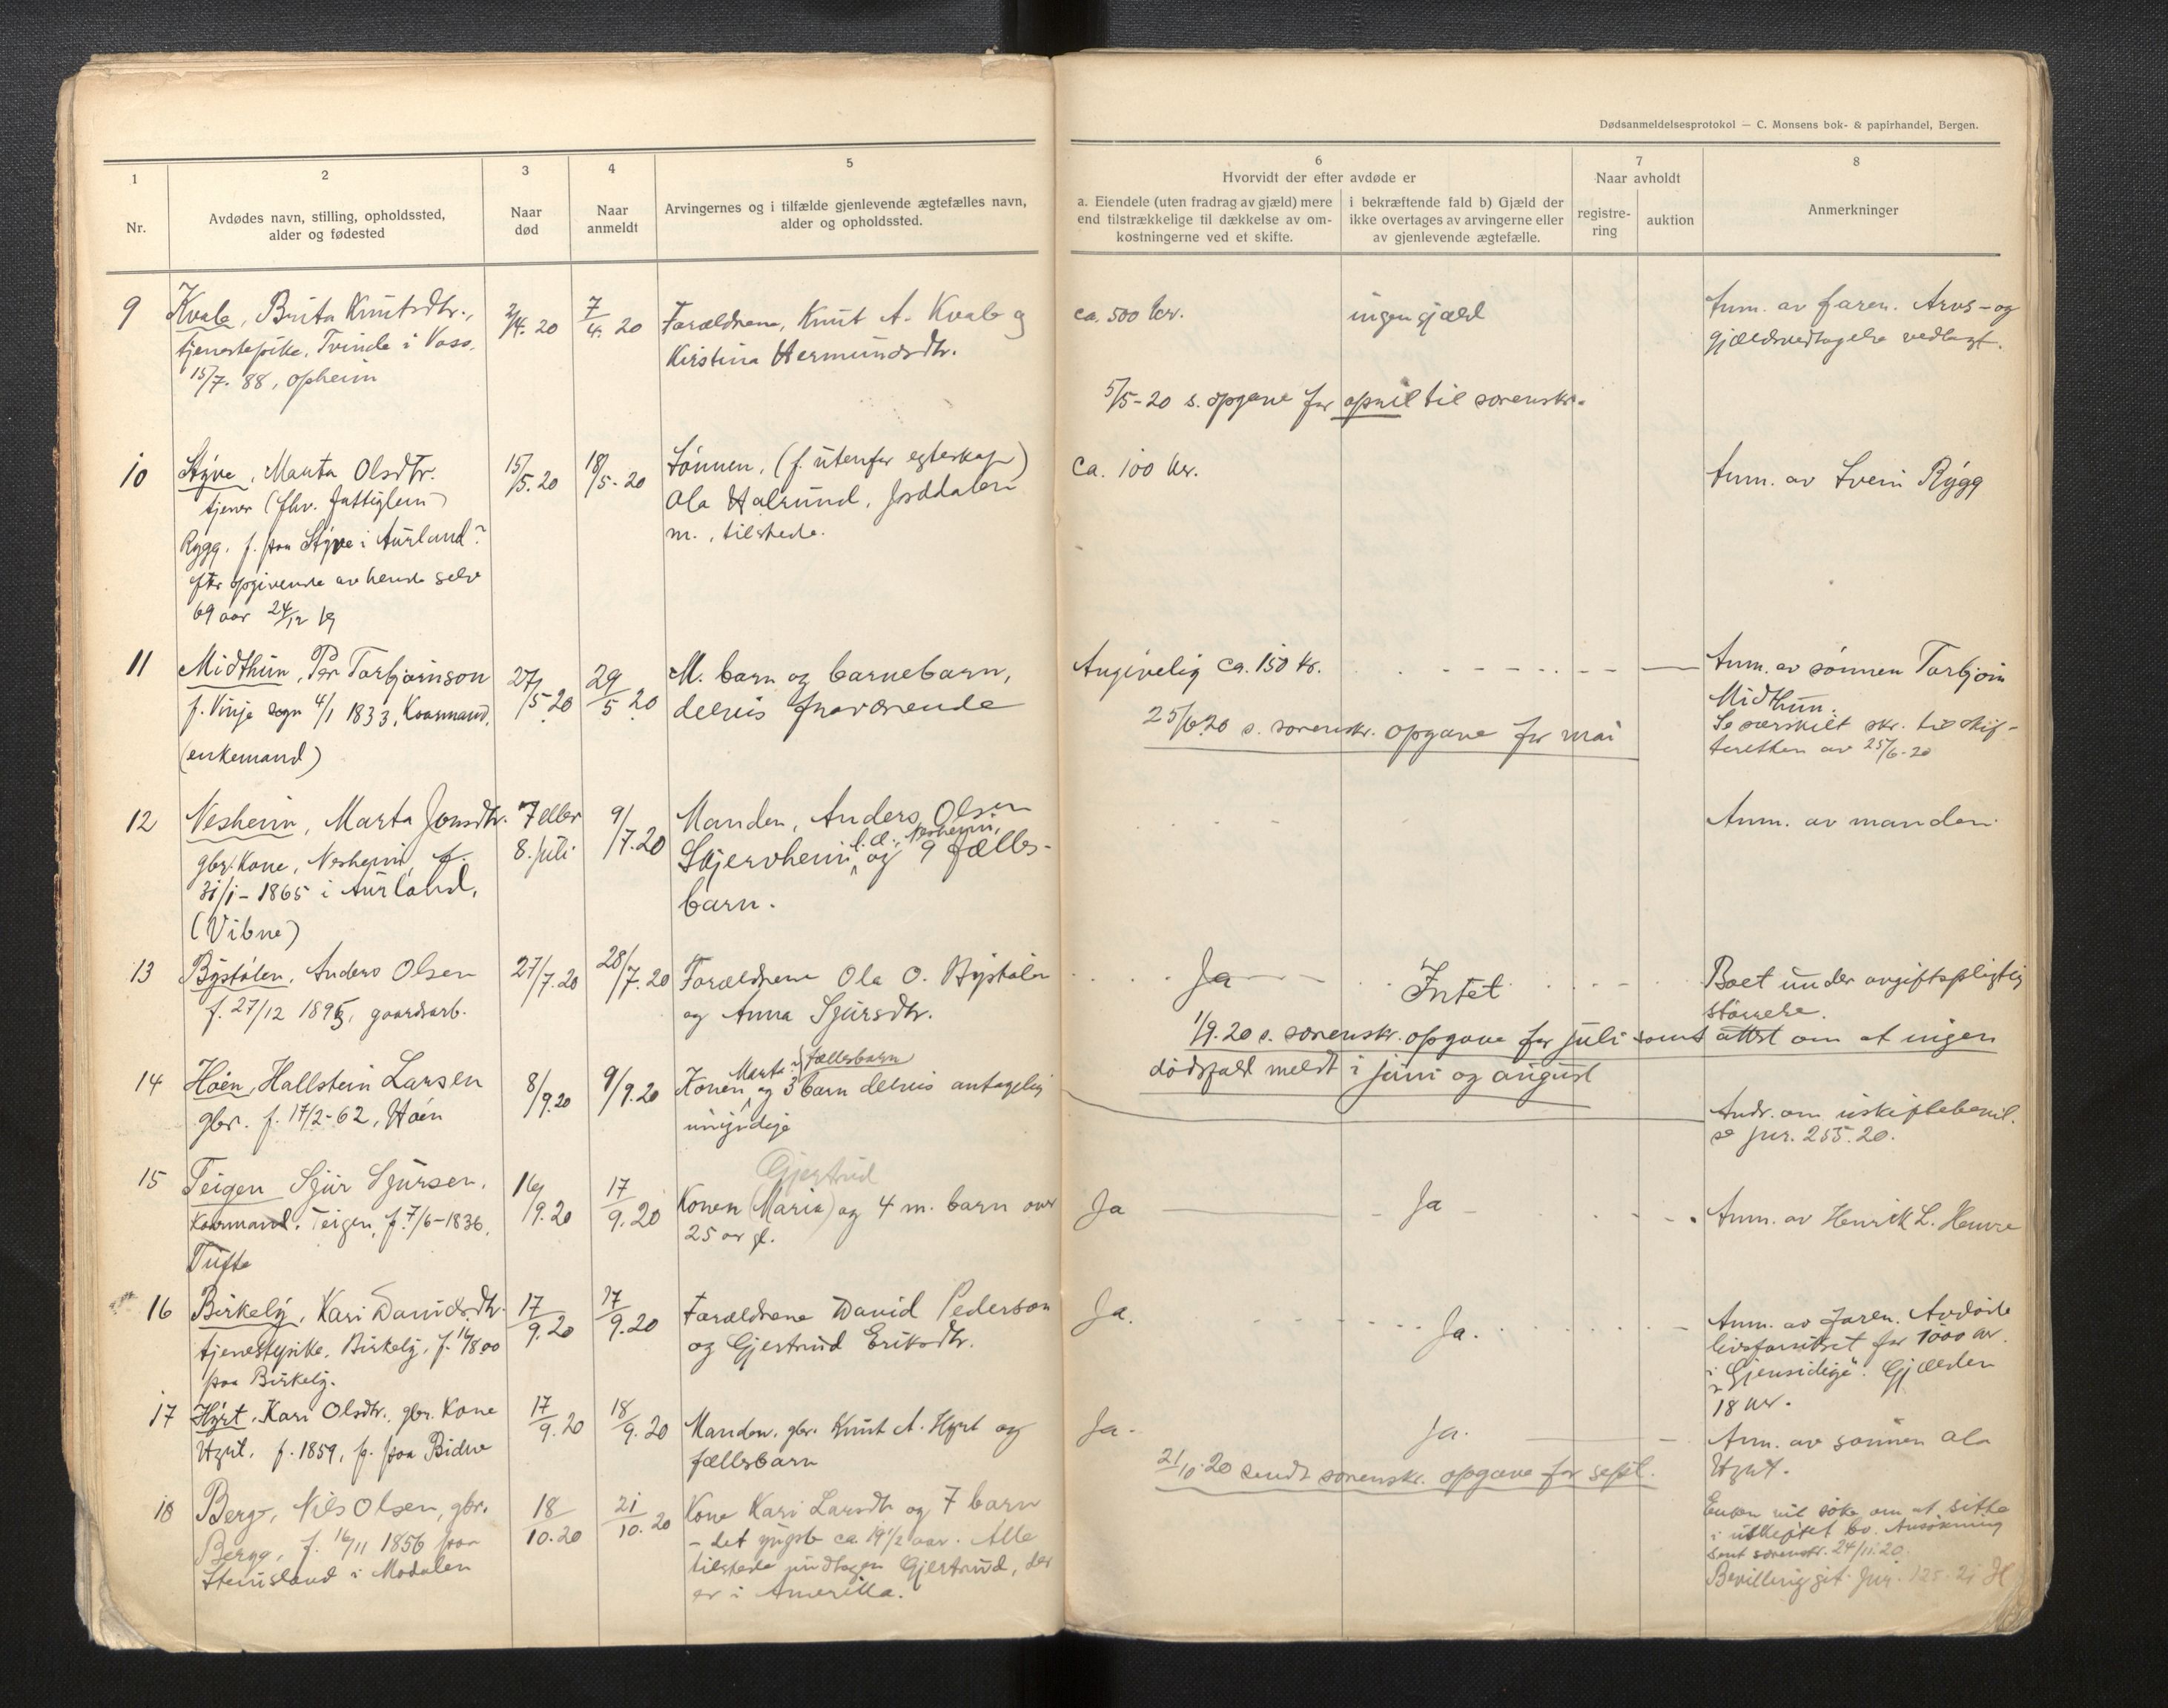 Dødsanmeldelsesprotokol — C. Monsens bok- & papirhandel, Bergen.
1
Nr.
2
Avdødes navn, stilling, opholdssted,
alder og fødested
3
Naar
død
4
Naar
anmeldt
5
Arvingernes og i tilfælde gjenlevende ægtefælles navn,
alder og opholdssted.
6
Hvorvidt der efter avdøde er
a. Eiendele (uten fradrag av gjæld) mere
end tilstrækkelige til dækkelse av om-
kostningerne ved et skifte.
i bekræftende fald b) Gjæld der
ikke overtages av arvingerne eller
av gjenlevende ægtefælle.
7
Naar avholdt
registre-
ring
auktion
8
Anmerkninger
9
Kvale, Brita Knutsdtr.,
tjenestepike, Tvinde i Voss,
15/7. 88, Opheim
2/4. 20
7/4. 20
Forældrene, Knut A. Kvale og
Kirstina Hermundsdtr.
ca. 500 kr.
ingen gjæld
Anm. av faren. Arvs- og
gjældsvedtagelse vedlagt.
5/5-20 s. opgave for april til sorenskr.
10
Styve, Marta Olsdtr.
tjener (fhv. fattiglem)
Rygg, f. paa Styve i Aurland?
efter opgivende av hende selv
69 aar 24/12 19
15/5. 20
18/5-20
Sönnen, (f. utenfor egteskap)
Ola Halsund, Jorddalen
m., tilstede.
ca. 100 kr.
Anm. av Svein Rygg
11
Midthun, Per Torbjørnson
f. Vinje sogn 4/1 1833, Kaarmand,
(enkemand)
27/5 20
29/5 20
M. barn og barnebarn,
delvis fraværende
Angivelig ca. 150 kr.
Anm. av sønnen Torbjørn
Midthun.
Se særskilt skr. til skif-
teretten av 25/6-20
25/6 20 s. sorenskr. opgave for mai
12
Nesheim, Marta Jonsdtr.
gbr. Kone, Nesheim, f.
31/1-1865 i Aurland,
(Vibne)
7 eller
8. juli
9/7. 20
Manden, Anders Olsen
Skjervheim l. æ., Nesheim, og 9 fælles-
barn.
Anm. av manden
13
Bystölen, Anders Olsen
f. 27/12 1895, gaardsarb.
27/7. 20
28/7. 20
Forældrene Ola O. Bystölen
og Anna Sjursdtr.
Ja
Intet
Boet under avgiftspligtig
størrelse.
1/9. 20 s. sorenskr. opgave for juli samt attest om at ingen
dödsfald meldt i juni og august
14
Höen, Hallstein Larsen
gbr. f. 17/2-62, Höen
8/9. 20
9/9. 20
Konen Marta og 3 fællesbarn barn delvis antagelig
umyndige
Andr. om uskiftebevil.
se jur. 255. 20.
15
Teigen Sjur Sjursen,
Kaarmand, Teigen, f. 7/6-1836,
Tufte
16/9. 20
17/9. 20
Gjertrud
Konen (Maria) og 4 m. barn over
25 aar gl.
Ja
Ja
Anm. av Henrik L. Hemre
16
Birkely, Kari Davidsdtr.
tjenestepike, Birkely, f. 16/8 00
paa Birkely.
17/9. 20
17/9. 20
Forældrene David Pederson
og Gjertrud Eriksdtr.
Ja.
Ja.
Anm. av faren. Avdøde
livsforsikret for 1000 kr.
i "Gjensidige". Gjælden
18 kr.
17
Hyrt, Kari Olsdtr., gbr. Kone
Hyrt, f. 1859, f. paa Bidne
17/9. 20
18/9. 20
Manden, gbr. Knut A. Hyrt og
fællesbarn
Ja.
Ja.
Anm. av sønnen Ola
Hyrt.
21/10-20 sendt sorenskr. opgave for sept.
18
Berge, Nils Olsen, gbr.
Berge, f. 16/11 1856 paa
Steinsland i Modalen
18/10. 20
21/10. 20
Kone Kari Larsdtr og 7 barn
- det yngste ca 19 1/2 aar. Alle
tilstede undtagen Gjertrud, der
er i Amerika.
Enken vil søke om at sitte
i uskiftet bo. Ansökning
sent sorenskr. 24/11. 20.
Bevilling git. Jur. 125. 21